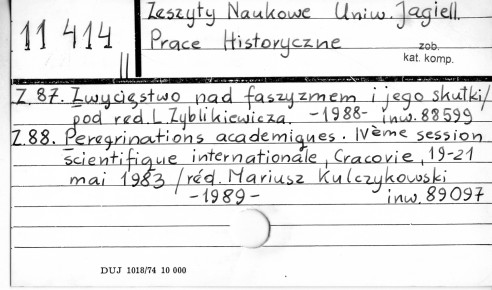 11 414
II
Zeszyty Naukowe Uniw. Jagiell.
Prace Historyczne
zob.
kat. komp.
Z. 87. Zwycięstwo nad faszyzmem i jego skutki/
pod red. L. Zyblikiewicza. -1988- inw. 88599
Z. 88. Peregrinations academiques. IVème session
scientifique internationale, Cracovie, 19-21
mai 1983 / réd. Mariusz Kulczykowski
-1989- inw. 89097
DUJ 1018/74 10 000